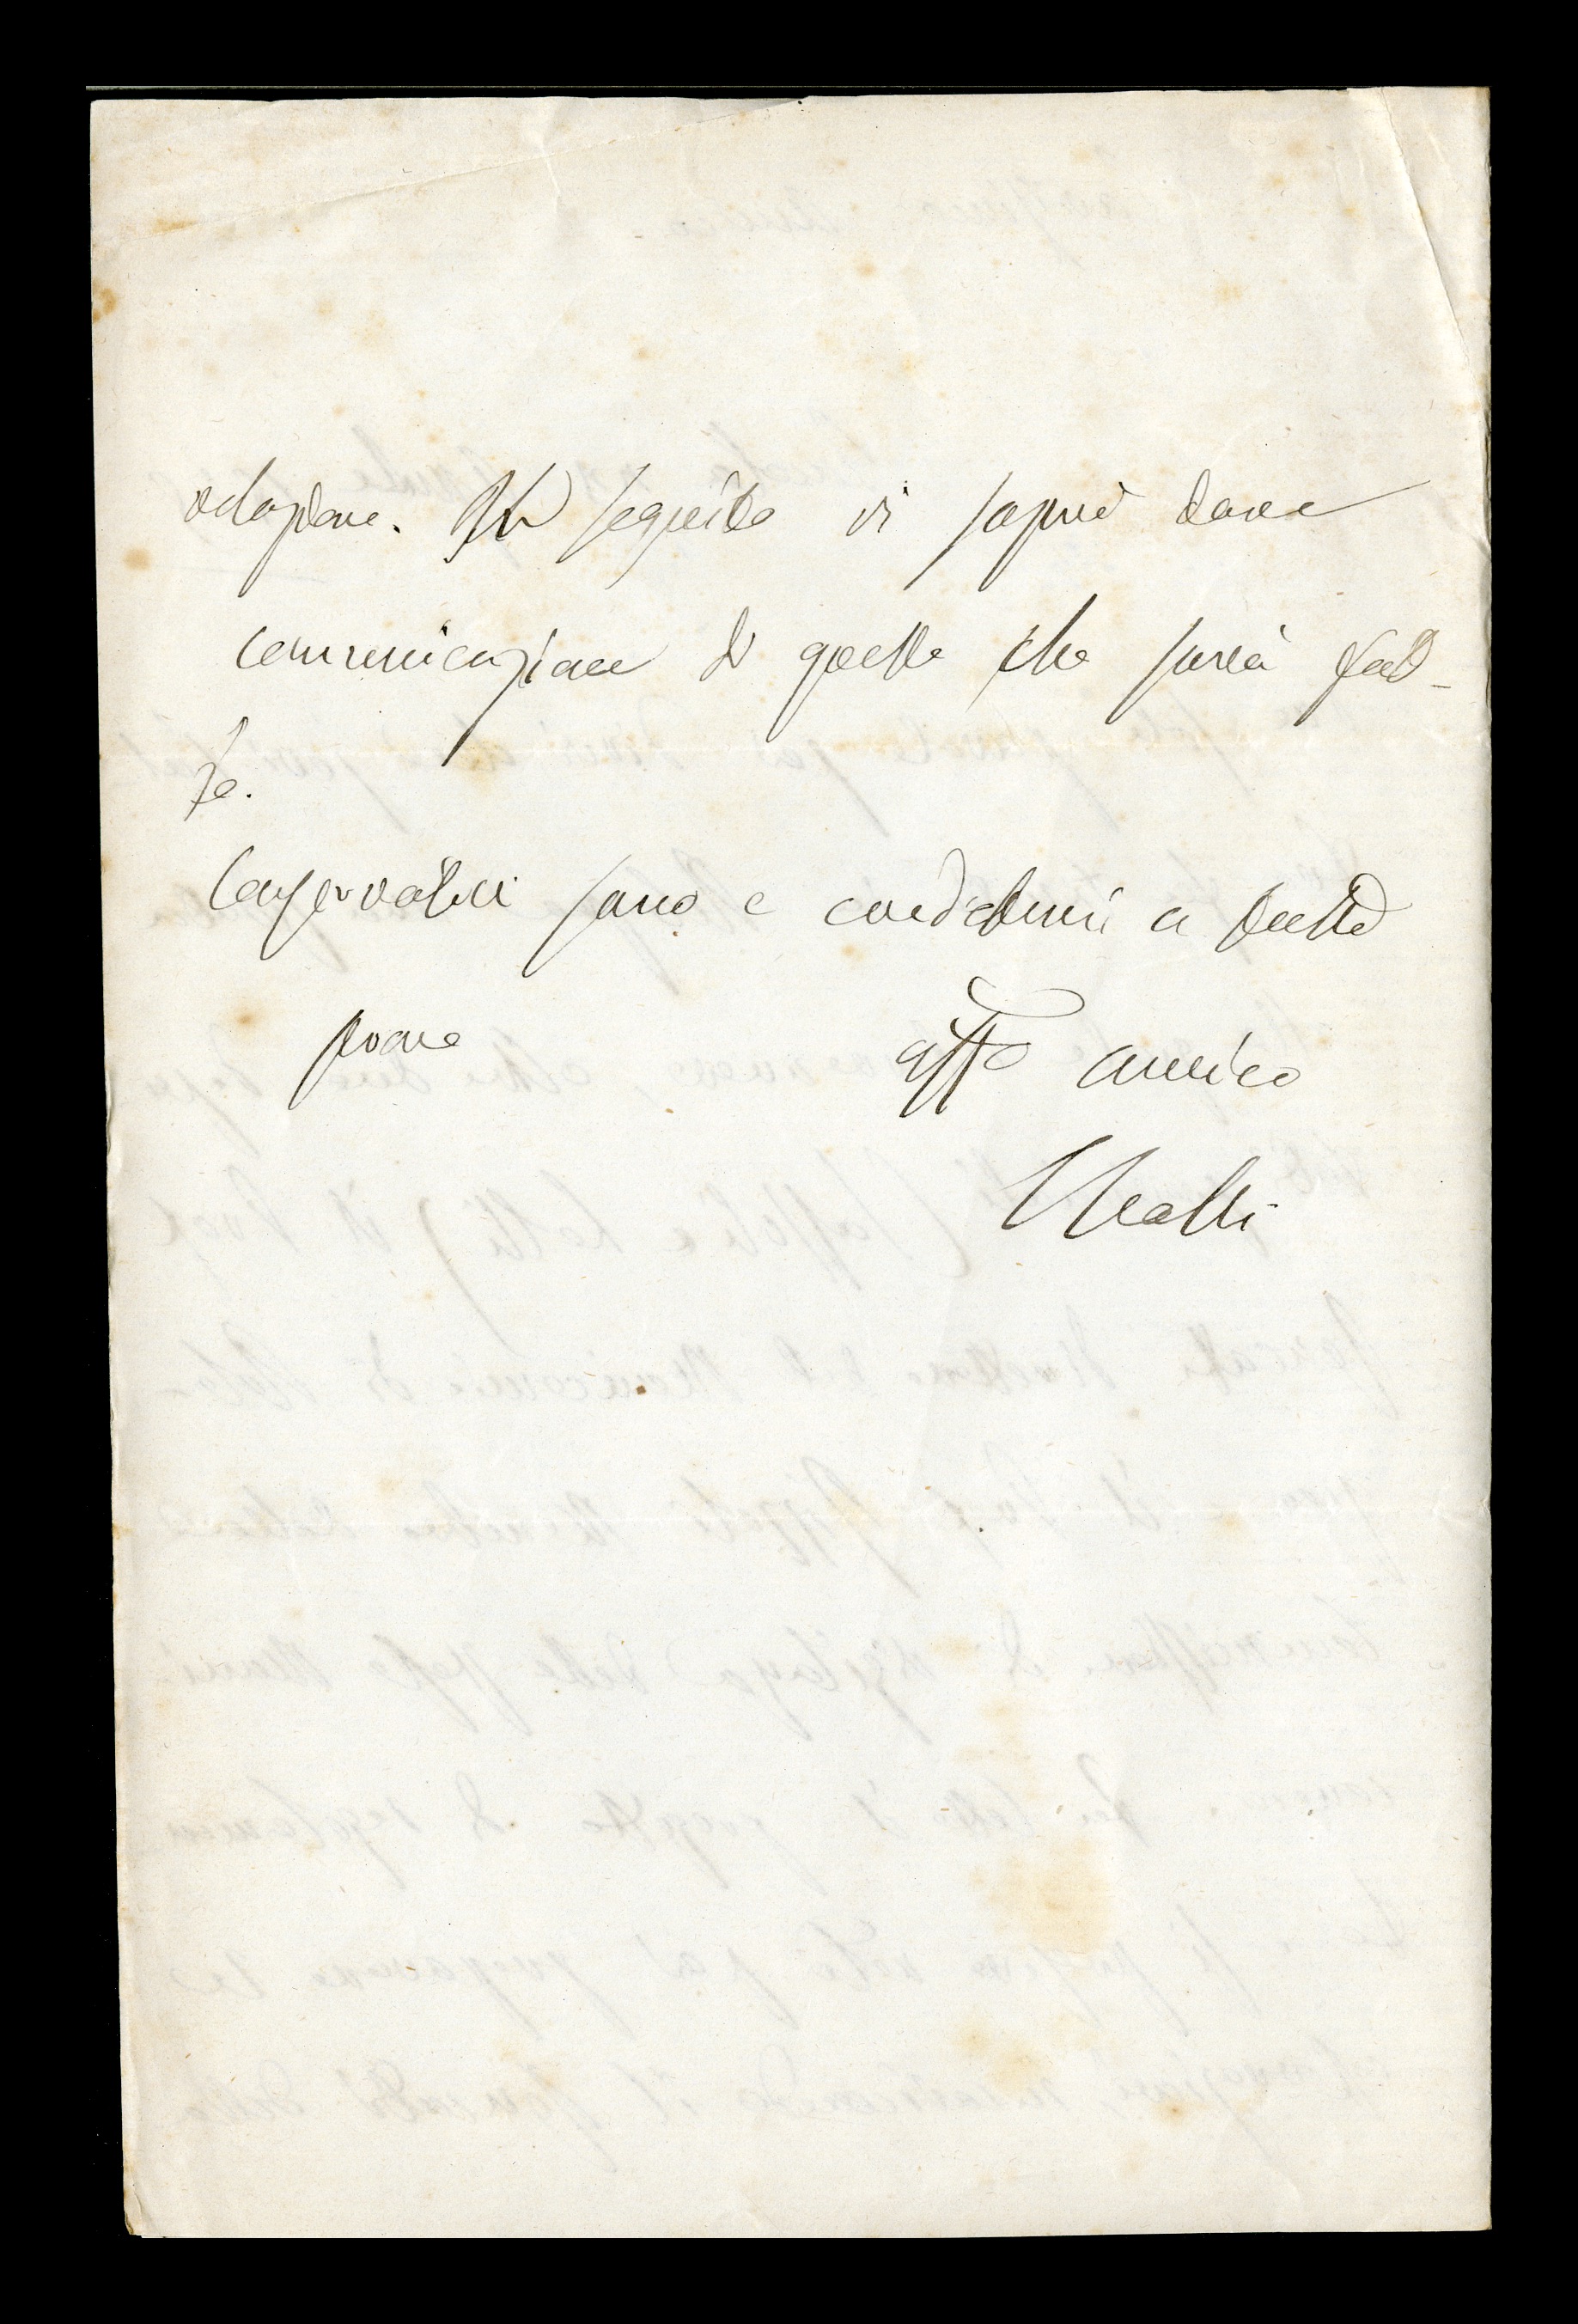 relazione. In seguito vi saprò dare
comunicazione di quello che sarà fat-
to.
Conservatevi sano e credetemi a tutte
prove
affo amico